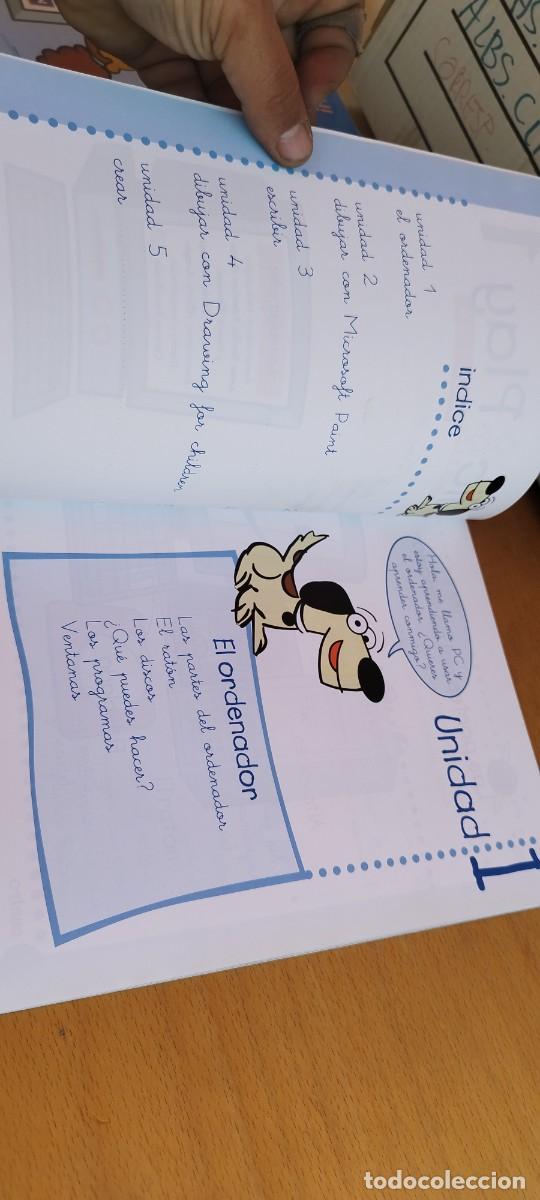 índice
unidad 1
el ordenador
unidad 2
dibujar con Microsoft Paint
unidad 3
escribir
unidad 4
dibujar con Drawing for children
unidad 5
crear
Hola, me llamo PC y
estoy aprendiendo a usar
el ordenador ¿Quieres
aprender conmigo?
Unidad 1
El ordenador
Las partes del ordenador
El ratón
Los discos
¿Qué puedes hacer?
Los programas
Ventanas
ALBS.CU
todocoleccion